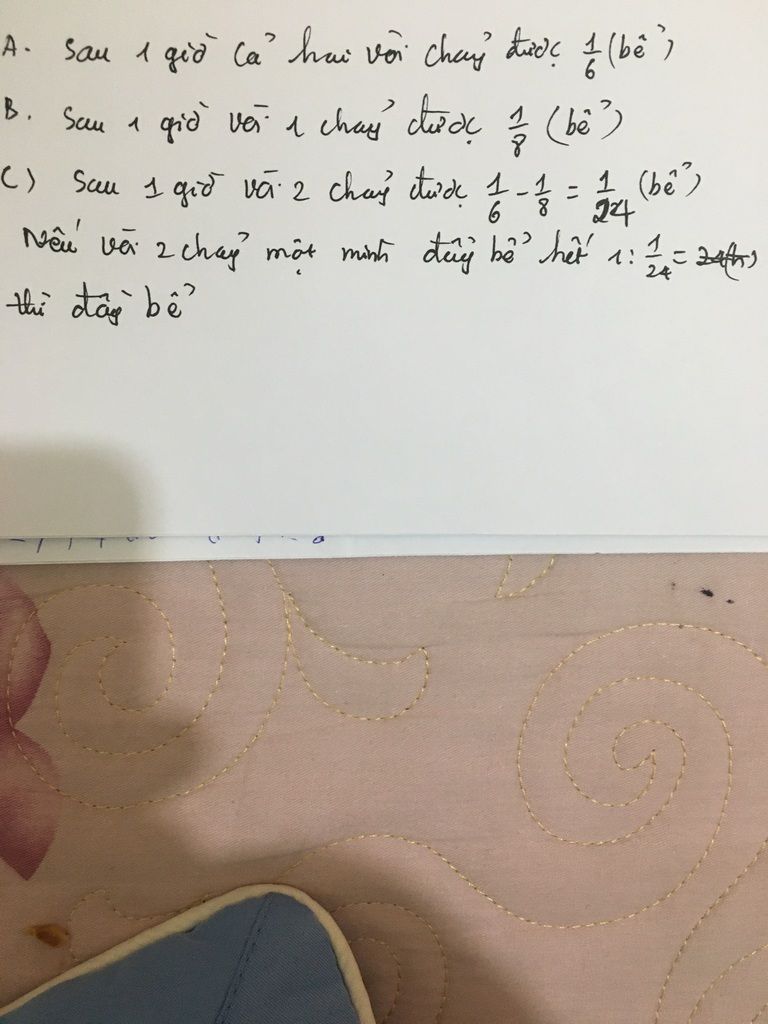 A. Sau 1 giờ cả hai vòi chảy được 1/6 (bể)
B. Sau 1 giờ vòi 1 chảy được 1/8 (bể)
C) Sau 1 giờ vòi 2 chảy được 1/6 - 1/8 = 1/24 (bể)
Nếu vòi 2 chảy một mình đầy bể hết 1: 1/24 = 24(h)
thì đầy bể